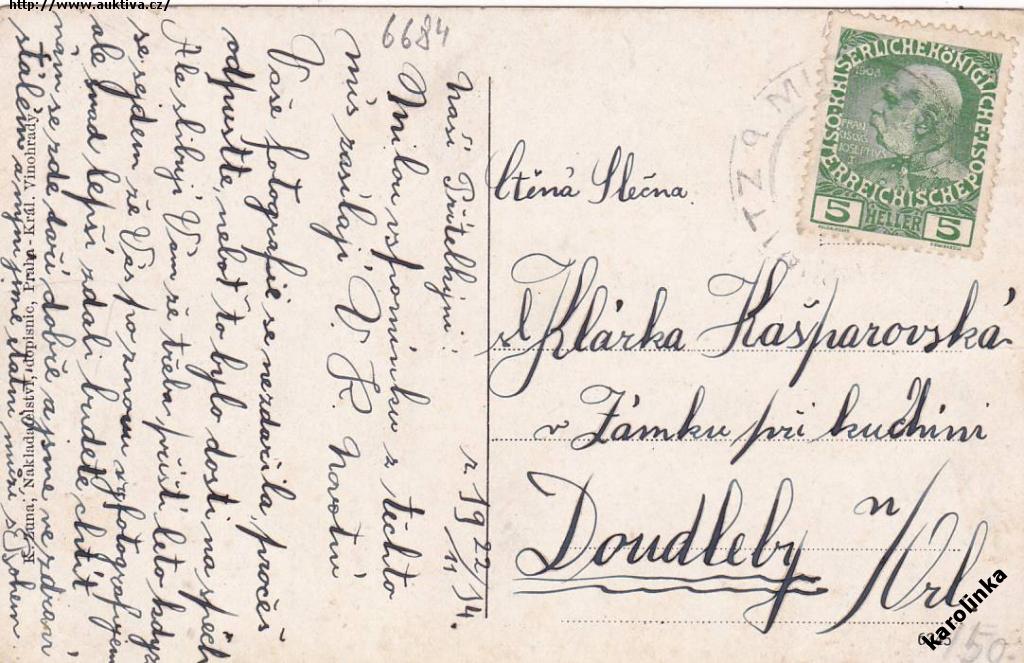 http://www.auktiva.cz/
6684
Naši Přítelkyni: z 19 22/11 14.
Milou vzpomínku z těchto
míst zasílají V. K. Novotní
Vaše fotografie se nezdařila, pročež
odpusťte, neboť to bylo dosti na spěch
Ale slibuji Vám že třeba příští léto když
se sejdem že Vás po znovu vyfotografujem
ale snad lepší zdali budete chtít
nám se zde daří dobře a jsme ve zdraví
stálém a nyní jsme statní muži s Bohem
K. Nakladatelství dopisnic, Praha - Král. Vinohrady.
Ctěná Slečna
sl Klárka Kašparovská
v Zámku při kuchini
Doudleby n/Orl
KAISERLICHE KÖNIGLICHE
ÖSTERREICHISCHE POST
1908
FRANCISCUS
JOSEPHUS I
5 HELLER 5
karolinka
150.